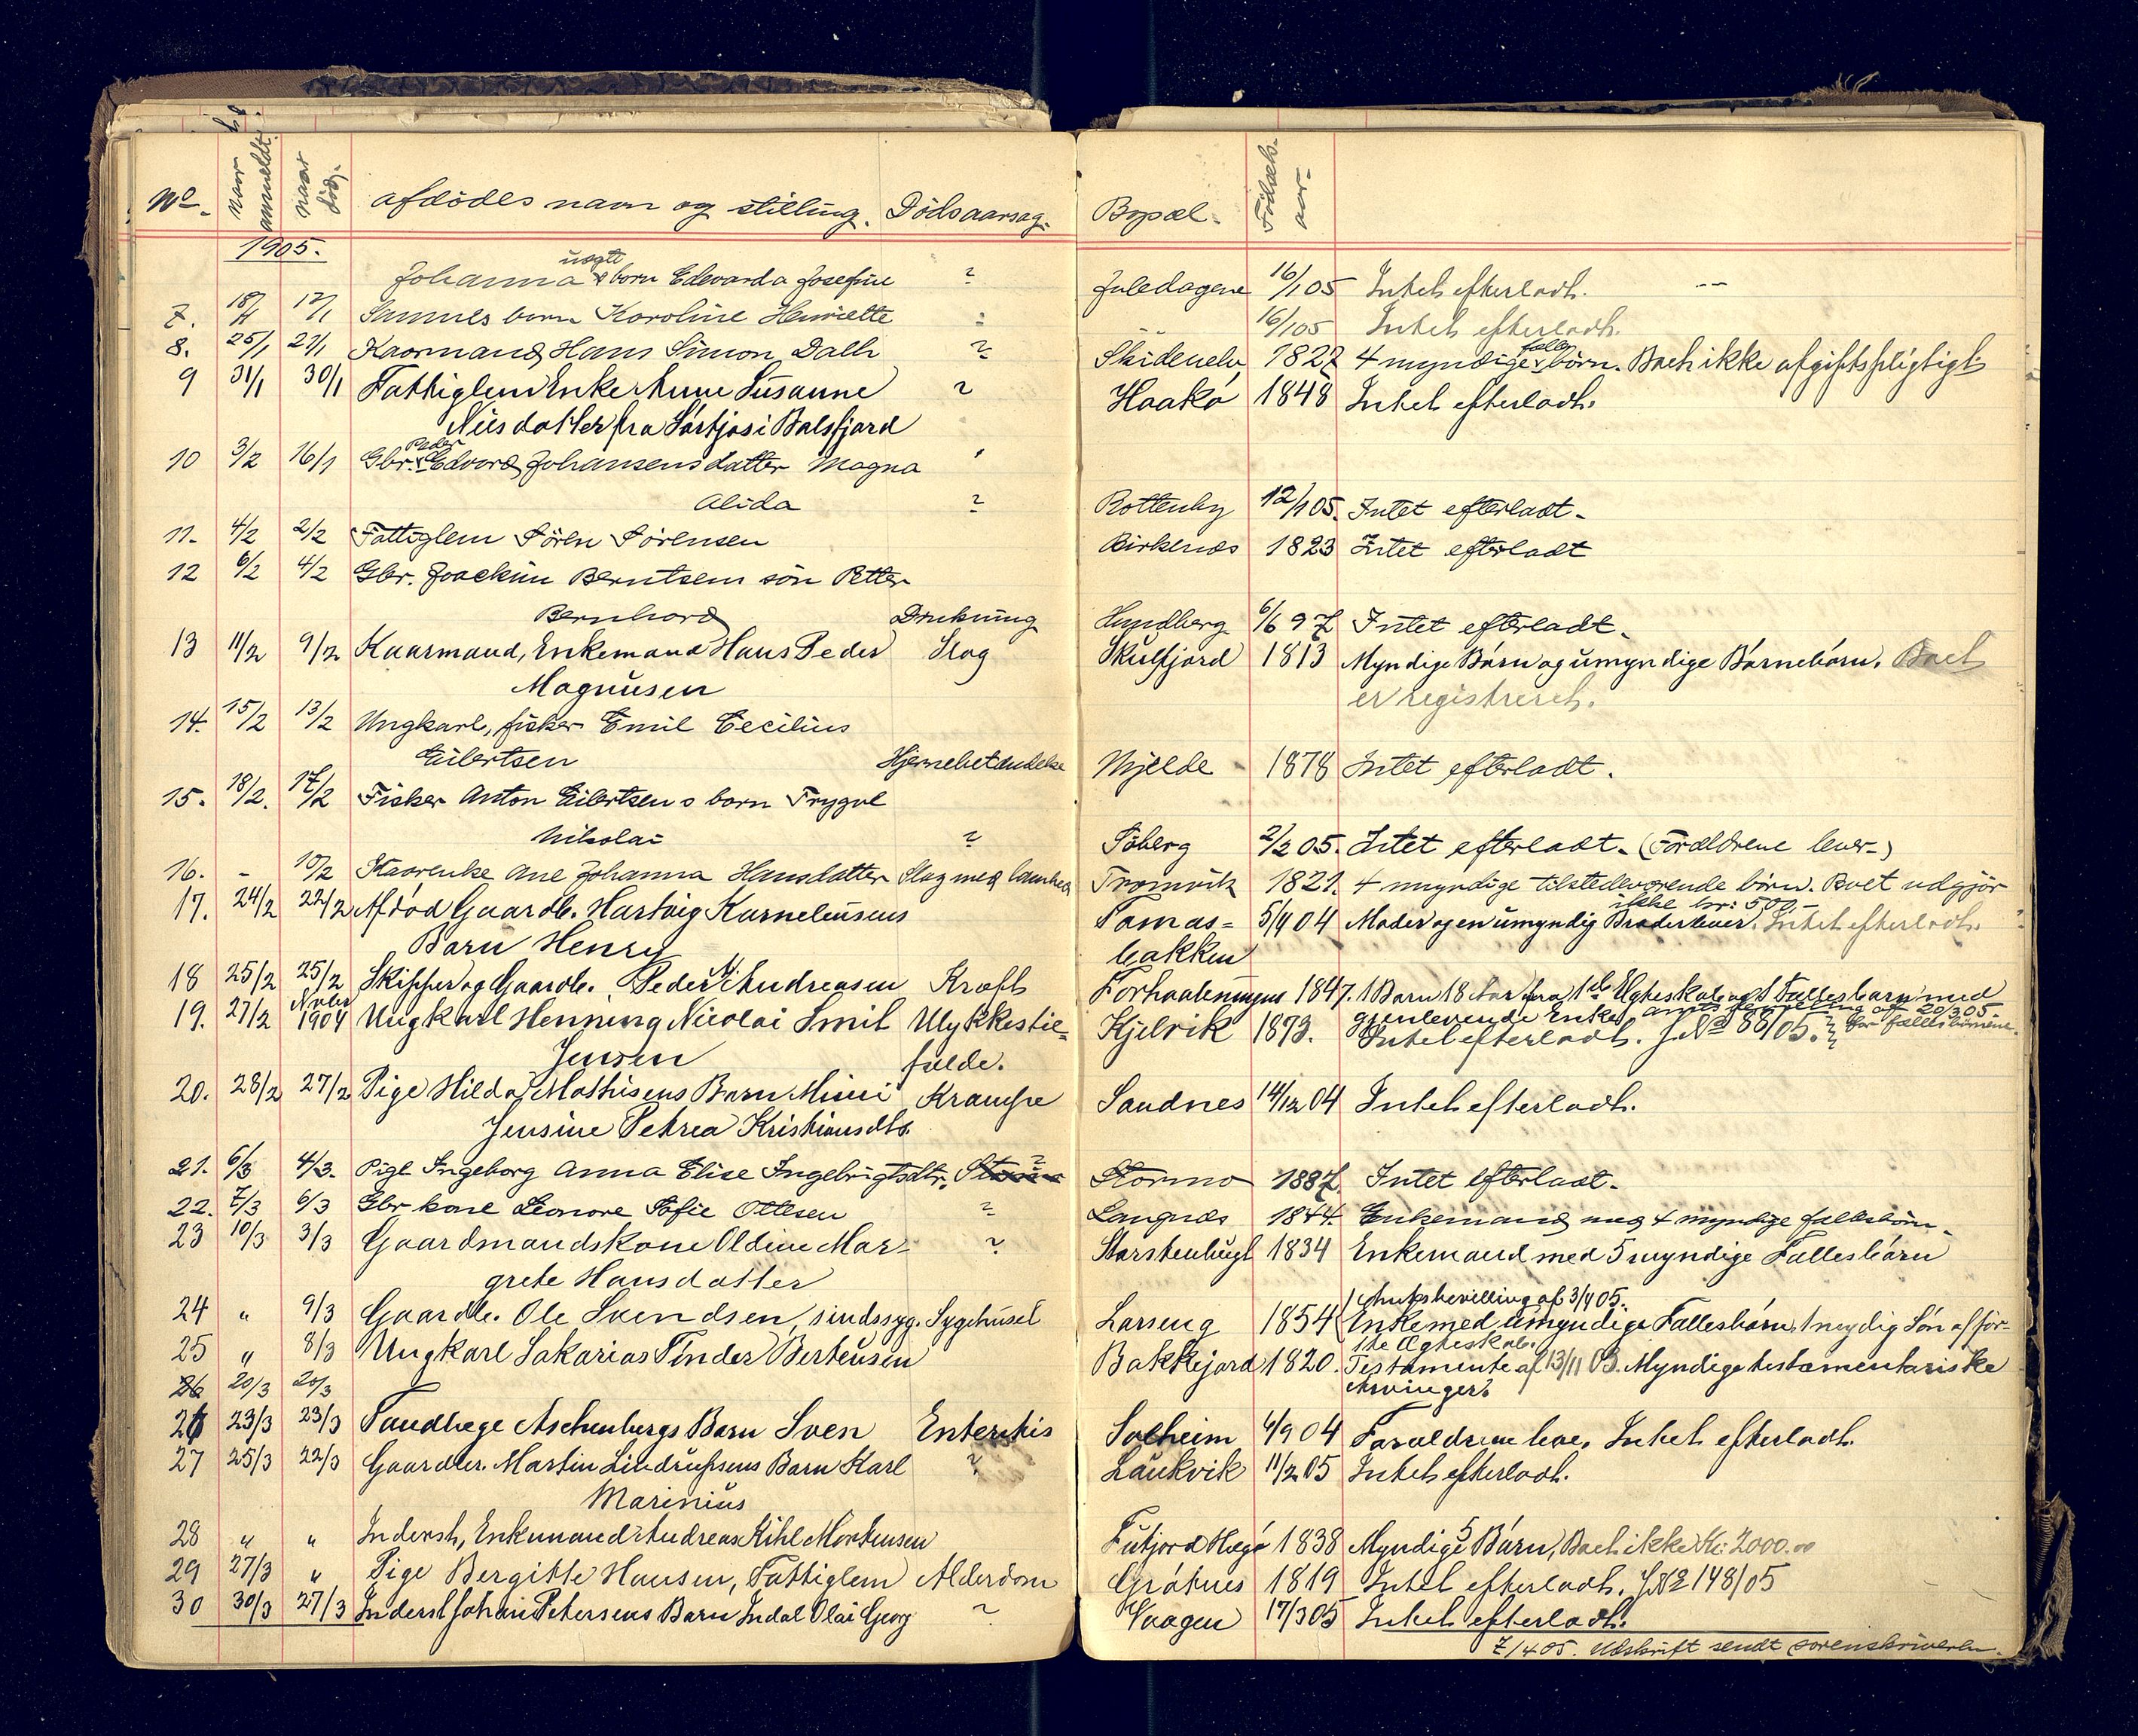 No. Naar anmeldt. naar död. afdödes navn og stilling. Dödsaarsag. Bopæl. Födsels- aar-
1905.
uægte
Johanna s barn Edvarda Josefine ? Juledagene 16/1 05 Intet efterladt. --
7. 18/1 17/1 Sammes barn Karoline Henriette 16/1 05 Intet efterladt.
8. 25/1 21/1 Kaarmand Hans Simon Dall ? Skidenelv 1827 4 myndige fælles børn. Boet ikke afgiftspligtigt
9 31/1 30/1 Fattiglem Enke Anne Susanne ? Haakö 1848 Intet efterladt.
Nilsdatter fra Sörkjos i Balsfjord
10 3/2 16/1 Gbr. Peder Edvard Johansens datter Magna
Alida ? Rottenby 12/1 05. Intet efterladt-
11- 4/2 2/2 Fattiglem Sören Sörensen Birkenes 1823 Intet efterladt
12 6/2 4/2 Gbr. Joackim Berntsens sön Petter
Bernhard Drukning Hundberg 6/6 97 Intet efterladt-
13 11/2 9/2 Kaarmand, Enkemand Hans Peder Slag Skulsfjord 1813 Myndige Börn og umyndige Börnebörn. Boet
Magnusen er registreret.
14. 15/2 13/2 Ungkarl, fisker Emil Cecilius
Eilertsen Hjernebetændelse Mjelde 1878 Intet efterladt.
15. 18/2. 17/2 Fisker Anton Eilertsens barn Trygve
Nikolai ? Söberg 2/2 05. Intet efterladt- (Forældrene lever-)
16. - 10/2 Kaarenke Ane Johanna Hansdatter Slag med lamhed Tromvik 1821. 4 myndige tilstedeværende börn. Boet udgjör
ikke kr: 500-
17. 24/2 22/2 Afdöd Gaardb. Hartvig Korneliusens Tomas= 5/9 04 Moder og en umyndig Broder lever. Intet efterladt.
Barn Henry bakken
18 25/2 25/2 Skipper og Gaardb. Peder M. Andreasen Kræft Forhaalningen 1847. 1 Barn 18 Aar fra 1ste Ægteskab og 1 Fællesbarn med
gjenlevende Enke,
19. 27/2 Novbr 1904 Ungkarl Henning Nicolai Smit Ulykkestil- Kjelvik 1873. Intet efterladt. J.No 88/05.
Jensen fælde.
20. 28/2 27/2 Pige Hilda Mathisens Barn Minni Krampe Sandnes 14/12 04 Intet efterladt.
Jensine Petrea Kristiansdtr.
21. 6/3 4/3. Pige Ingeborg Anna Elise Ingebrigtsdtr. ? Stormo 1887. Intet efterladt-
22. 7/3 6/3 Gbr kone Leonore Sofie Ottesen ? Langnes 1844. Enkemand med 4 myndige fællesbörn-
23 10/3 3/3 Gaardmandskone Oldine Mar- ? Storstenbugt 1834 Enkemand med 5 myndige Fællesbörn
grete Hansdatter
24 " 9/3 Gaardb. Ole Svendsen, sindssyg. Sygehuset Larseng 1854 Enke med umyndige Fællesbörn, 1 myndig Sön af för-
ste Ægteskab.
25 " 8/3 Ungkarl Sakarias Pinder Berteusen Bakkejord 1820. Testamente af 13/11 03. Myndige testamentariske
Arvinger.
26 20/3 20/3
26 23/3 23/3 Tandlæge Aschenbergs Barn Sven Enteritis Solheim 4/9 04 Forældrene leve. Intet efterladt.
27 25/3 22/3 Gaardbr. Martin Lindrupsens Barn Karl ? Laukvik 11/2 05 Intet efterladt.
Marinius
28 " " Inderst, Enkemand Andreas Kihl Mortensen Futjord Hegö 1838 Myndige 5 Börn, Boet ikke Kr. 2000.00
29 27/3 " Pige Bergitte Hansen, Fattiglem Alderdom Grötnes 1819 Intet efterladt. J.No 148/05
30 30/3 27/3 Inderst Johan Petersens Barn Indal Olai Georg ~ Vaagen 17/3 05 Intet efterladt.
7/4 05. Udskrift sendt sorenskriveren.